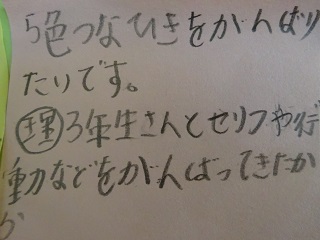 5色つなひきをがんばり
たいです。
理 3年生さんとセリフや行
動などをがんばってきたか